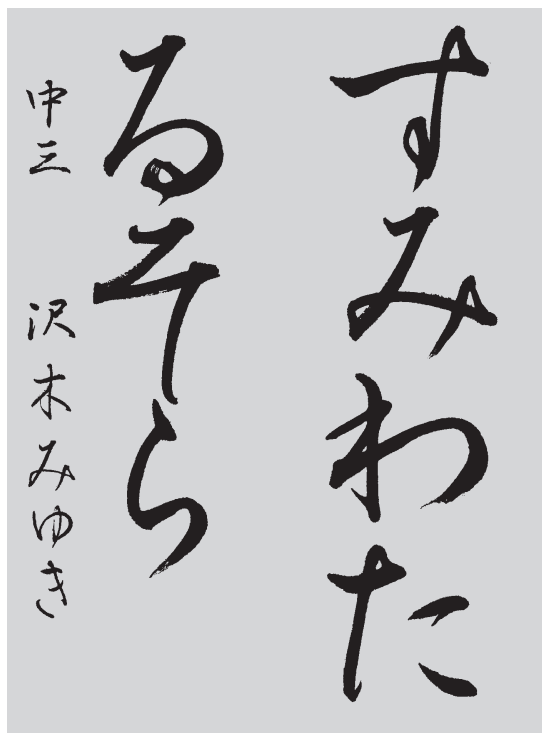 すみわた
るそら
中三 沢木みゆき